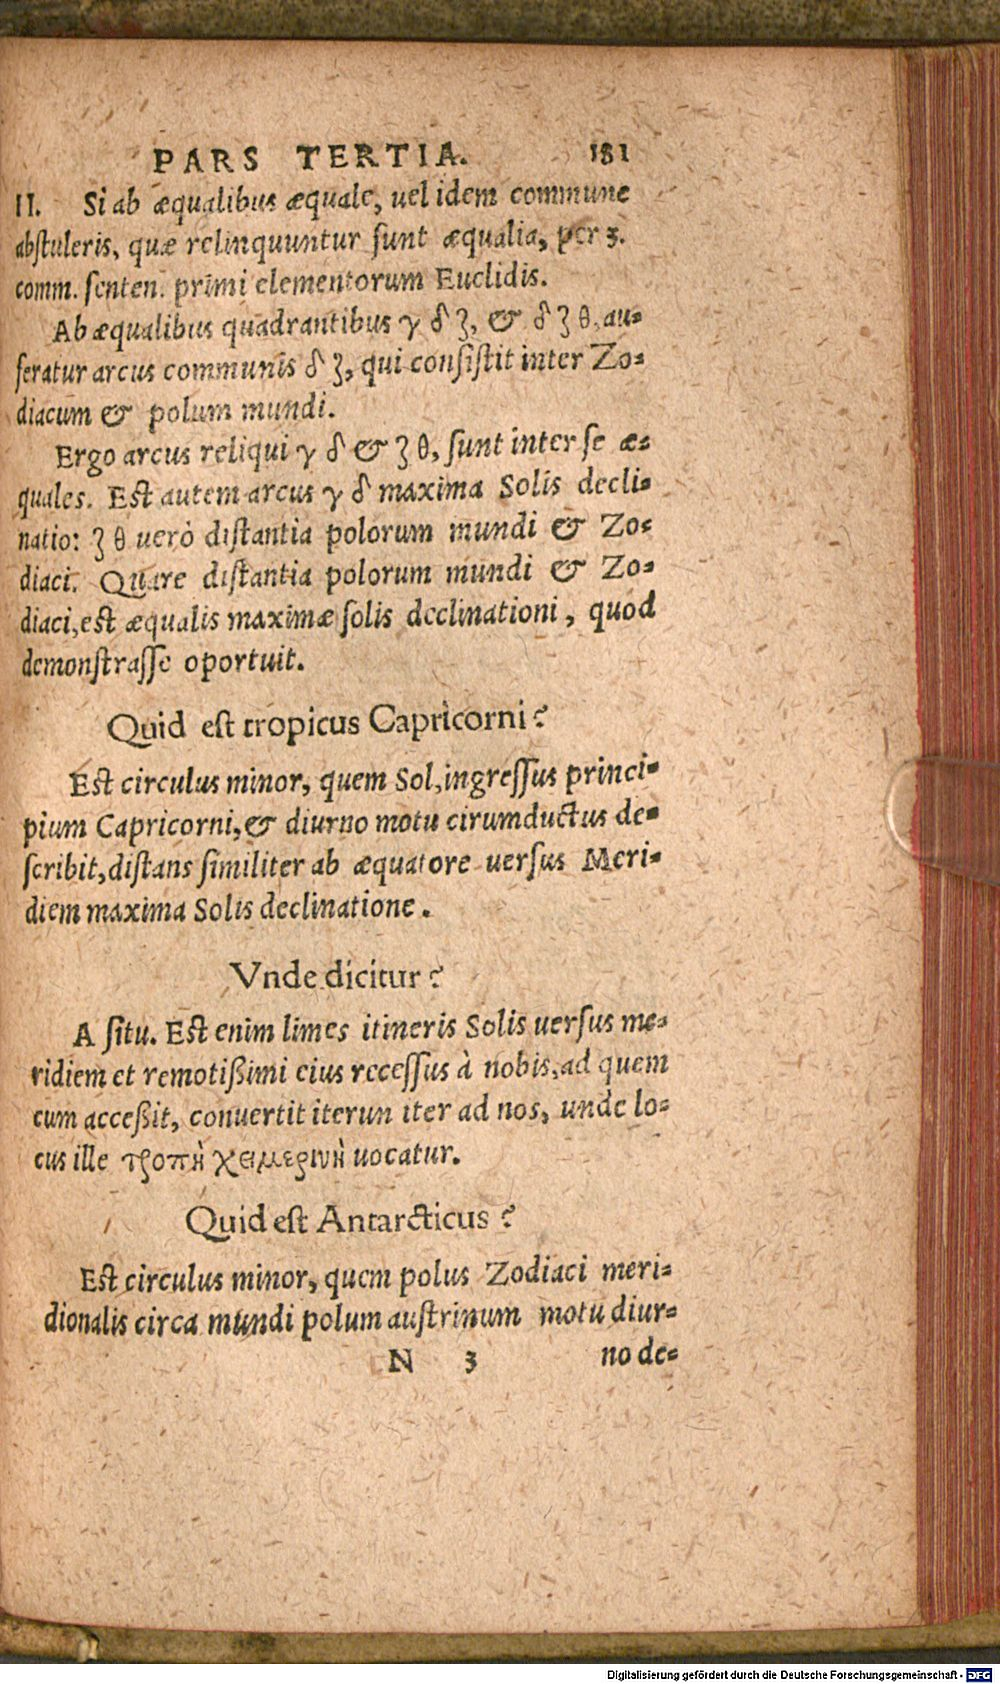 PARS TERTIA. 181
II. Si ab æqualibus æquale, uel idem commune
abstuleris, quæ relinquuntur sunt æqualia, per 3.
comm. senten. primi elementorum Euclidis.
Ab æqualibus quadrantibus γ δ ζ, & δ ζ θ, au-
feratur arcus communis δ ζ, qui consistit inter Zo-
diacum & polum mundi.
Ergo arcus reliqui γ δ & ζ θ, sunt inter se æ-
quales. Est autem arcus γ δ maxima Solis decli-
natio: ζ θ uerò distantia polorum mundi & Zo-
diaci. Quare distantia polorum mundi & Zo-
diaci, est æqualis maximæ solis declinationi, quod
demonstrasse oportuit.
Quid est tropicus Capricorni?
Est circulus minor, quem Sol, ingressus princi-
pium Capricorni, & diurno motu cirumductus de-
scribit, distans similiter ab æquatore uersus Meri-
diem maxima Solis declinatione.
Vnde dicitur?
A situ. Est enim limes itineris Solis uersus me-
ridiem et remotißimi eius recessus à nobis, ad quem
cum acceßit, conuertit iterun iter ad nos, unde lo-
cus ille τροπὴ χειμερινὴ uocatur.
Quid est Antarcticus?
Est circulus minor, quem polus Zodiaci meri-
dionalis circa mundi polum austrinum motu diur-
N 3 no de-
Digitalisierung gefördert durch die Deutsche Forschungsgemeinschaft - DFG